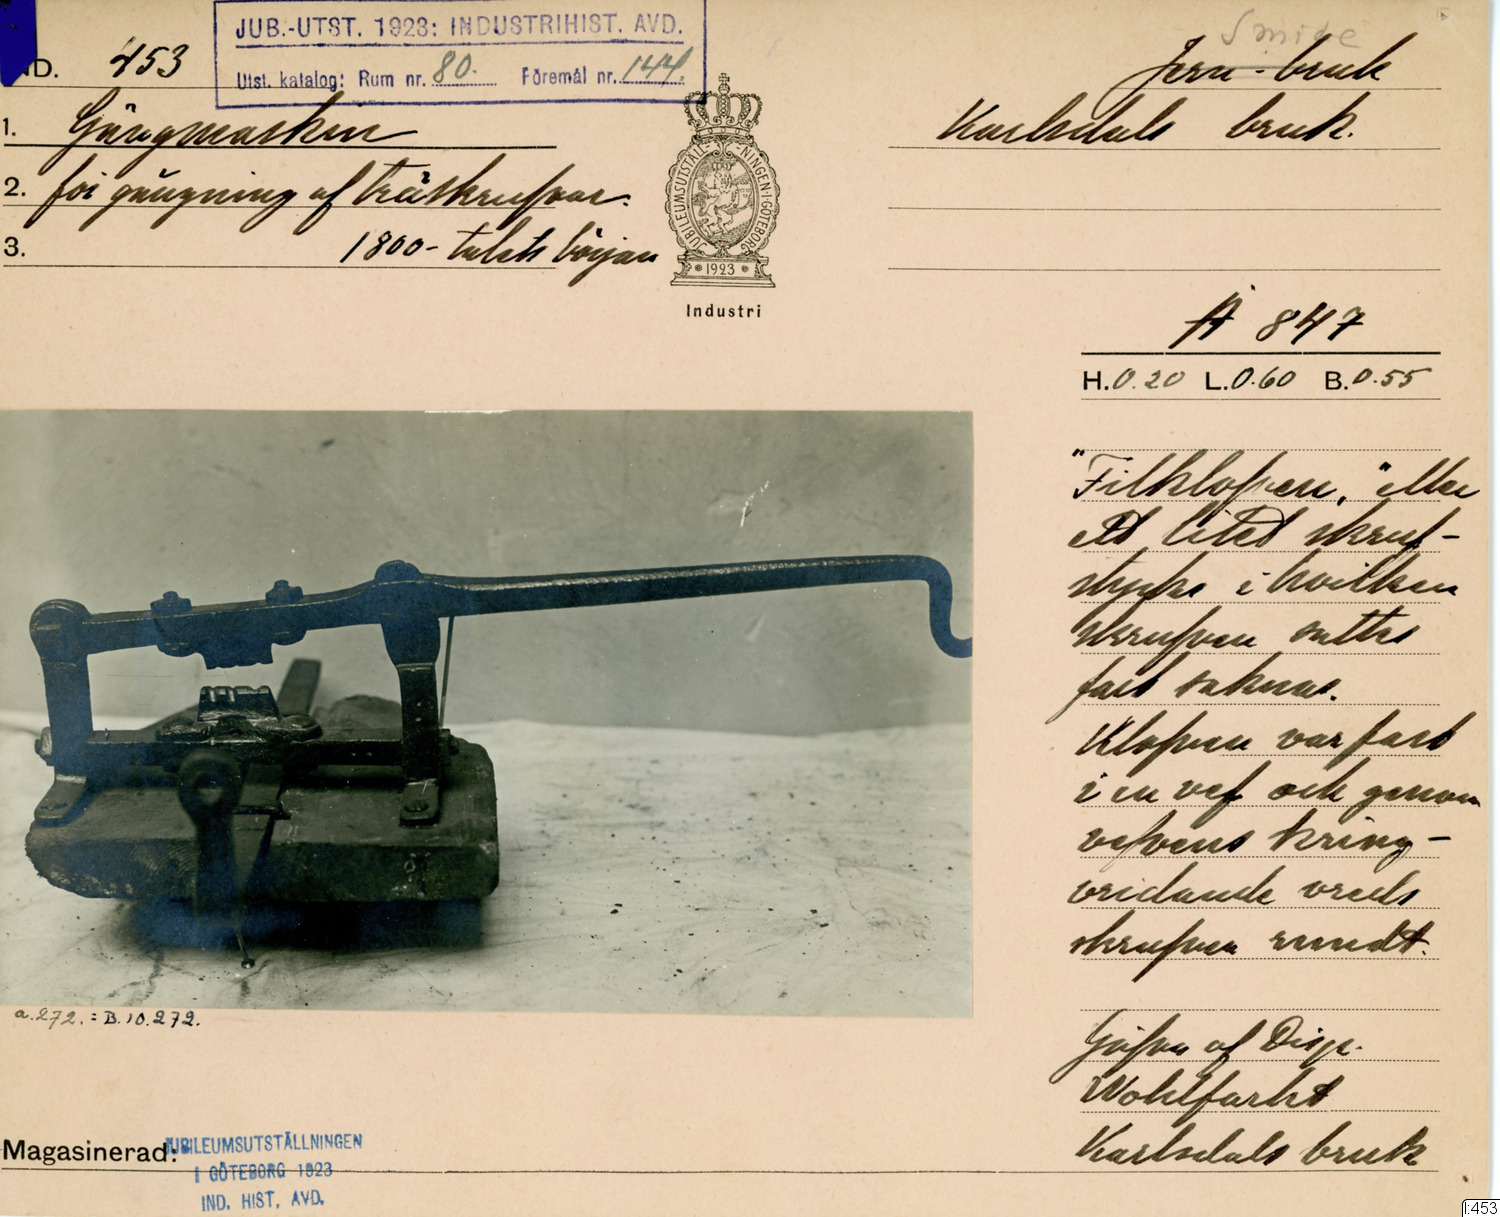 JUB.-UTST. 1923: INDUSTRIHIST. AVD.
Utst. katalog: Rum nr. 80. Föremål nr. 144.
IND. 453
1. Gängmaskin
2. för gängning af träskrufvar.
3. 1800-talets början
JUBILEUMSUTSTÄLLNINGEN I GÖTEBORG
1923
Industri
Smide
Jern-bruk
Karlsdals bruk.
A 847
H. 0.20 L. 0.60 B. 0.55
"Filklofven," eller
ett litet skruf-
stycke i hvilken
skrufven sattes
fast saknas.
Klofven var fast
i en vef och genom
vefvens kring-
vridande vreds
skrufven rundt.
Gifven af Disp.
Wohlfarht
Karlsdals bruk
a.272. = B.10.272.
Magasinerad:
JUBILEUMSUTSTÄLLNINGEN
I GÖTEBORG 1923
IND. HIST. AVD.
I:453